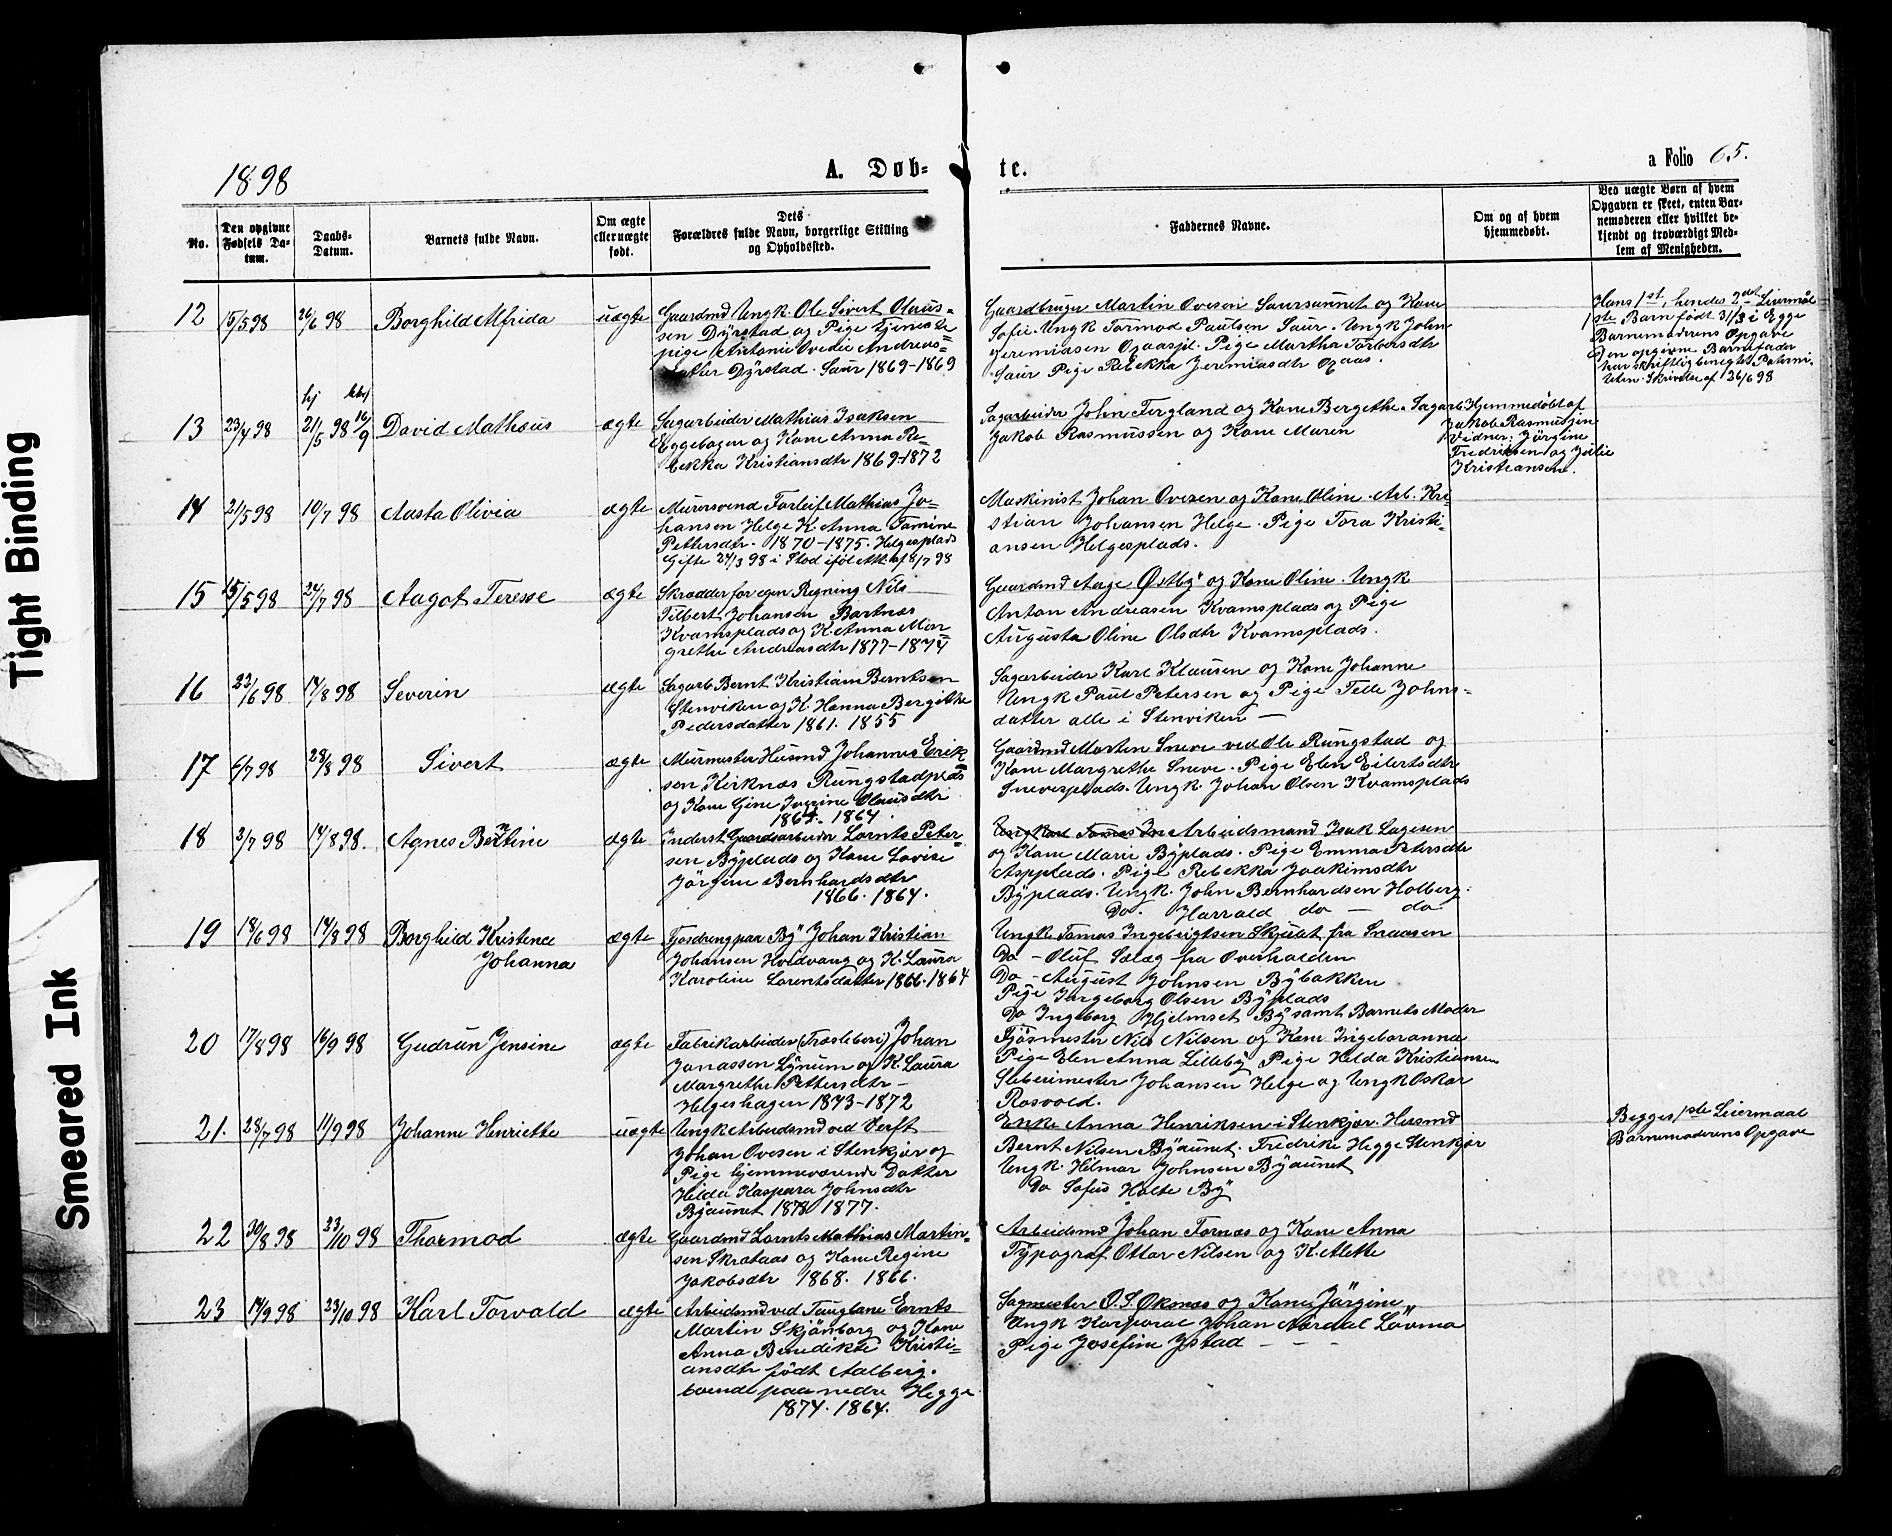 Tight Binding
Smeared Ink
1898
A. Døb-
te.
a Folio 65.
No.
Den opgivne Fødsels Da-
tum.
Daabs-
Datum.
Barnets fulde Navn.
Om ægte
eller uægte
født.
Dets
Forældres fulde Navn, borgerlige Stilling
og Opholdssted.
Faddernes Navne.
Om og af hvem
hjemmedøbt.
Ved uægte Børn af hvem
Opgaven er skeet, enten Bar-
nemoderen eller hvilket be-
kjendt og troværdigt Med-
lem af Menigheden.
12 15/5 98 26/6 98 Borghild Alfrida uægte
Gaardmd Ungk. Ole Sivert Olaus-
sen Dÿrstad og Pige tjeneste
pige Antonie Ovedie Andreas-
datter Dÿrstad. Saur 1869-1869
Gaardbruger Martin Ovesen Saursaunet og Kone
Sofie. Ungk Tormod Paulsen Saur. Ungk John
Jeremiasen Ogaaspl. Pige Martha Torbersdtr
Saur Pige Rebekka Jeremiasdtr Ogaas.
Hans 1st, hendes 2det Leiermål
1ste Barn født 31/3 i Egge
Barnemoderens Opgave
Den opgivne Barnefader
har skriftlig benegtet Paterni-
teten. Skrivelse af 26/6 98
13 23/4 98 hj 21/5 98 16/9 David Mathæus ægte
Sagarbeider Mathias Isaksen
Eggebogen og Kone Anna Re-
bekka Kristiansdtr 1869-1872
Sagarbeider John Fergland og Kone Bergethe. Sagarb
Jakob Rasmussen og Kone Maren
Hjemmedøbt af
Jakob Rasmussen
Vidner: Jørgine
Fredriksen og Julie
Kristiansen.
14 21/5 98 10/7 98 Aasta Olivia ægte
Murersvend Torleif Mathias Jo-
hansen Helge K. Anna Tomine
Pettersdtr. 1870-1875. Helgesplads
Gifte 24/3 98 i Stod iføl Att. af 8/7 98
Maskinist Johan Ovesen og Kone Oline. Arb. Kri-
stian Johansen Helge. Pige Tora Kristi-
ansen Helgesplads.
15 15/5 98 24/7 98 Aagot Teresse ægte
Skrædder for egen Regning Nils
Tilbert Johansen Bartnes
Kvamsplads og K. Anna Mar
grethe Andreasdtr 1877-1874
Gaardmd Aage Østbÿ og Kone Oline. Ungk
Anton Andreasen Kvamsplads og Pige
Augusta Oline Olsdtr Kvamsplads.
16 22/6 98 14/8 98 Severin ægte
Sagarb Bernt Kristian Berntsen
Stenviken og K. Hanna Bergithe
Pedersdatter 1861. 1855
Sagarbeider Karl Klausen og Kone Johanne
Ungk Paul Petersen og Pige Telle Johns-
datter alle i Stenviken
17 6/7 98 28/8 98 Sivert ægte
Murmester Husmd Johannes Erik
sen Kirknæs Rungstadplds
og Kone Gine Iverine Olausdtr
1864. 1864.
Gaardmd Morten Sneve ved Ole Rungstad og
Kone Margrethe Sneve. Pige Elen Eilertsdtr
Snevesplads. Ungk. Johan Olsen Kvamsplads
18 3/7 98 14/8 98. Agnes Bertine ægte
Inderst Gaardsarbeider Lornts Peter-
sen Bÿplads og Kone Lovise
Jörgine Bernhardsdtr
1866. 1864.
Ungkarl Tomas In Arbeidsmand Isak Lagesen
og Kone Marie Bÿplads. Pige Emma Petersdtr
Aspplads. Pige Rebekka Joakimsdtr
Bÿplads. Ungk. John Bernhardsen Holberg.
Do. Harrald do - do
19 18/6 98 14/8 98 Borghild Kristence
Johanna ægte
Fjøsdreng paa Bÿ Johan Kristian
Johansen Hvedvang og K. Laura
Karoline Lorentsdatter 1866. 1864
Ungk Tomas Ingebrigtsen Skjulst fra Snaasen
Do - Oluf Sælæg fra Overhalden
Do - August Johnsen Bÿbakken
Pige Ingeborg Olsen Bÿplads
Do Ingeborg Hjelmset Bÿ samt Barnets Moder
20 17/8 98 16/9 98 Gudrun Jensine ægte
Fabrikarbeider (Træsliberi) Johan
Jonassen Lÿnum og K. Laura
Margrethe Pettersdtr -
Helgeshagen 1873-1872
Fjøsmester Nils Nilsen og Kone Ingeboranna
Pige Elen Anna Lillebÿ Pige Helda Kristiansen
Sliberimester Johansen Helge og Ungk Oskar
Rosvold.
21. 28/7 98 11/9 98 Johanne Henriette uægte
Ungk Arbeidsmd ved Verft
Johan Ovesen i Stenkjær og
Pige hjemmeværende Datter
Helda Kaspara Johnsdtr
Bÿaunet 1878 1877.
Enke Anna Henriksen i Stenkjær. Husmd
Bernt Nilsen Bÿaunet. Fredrike Hegge Stenkjær
Ungk. Hilmar Johnsen Bÿaunet
Do Sofus Holte Bÿ
Begges 1ste Leiermaal
Barnemoderens Opgave
22 30/8 98 23/10 98 Thormod ægte
Gaardmd Lornts Mathias Martin-
sen Skrataas og Kone Regine
Jakobsdtr 1868. 1866.
Arbeidsmd Johan Fornæs og Kone Anna
Tÿpograf Ottar Nilsen og K. Alette
23 17/9 98 23/10 98 Karl Torvald ægte
Arbeidsmd ved Tauglane Ernts
Martin Skjönborg og Kone
Anna Benedikte Kristi-
ansdtr født Aalberg.
boende paa nedre Hegge
1874. 1864.
Sagmester O. S. Øksnæs og Kone Jörgine
Ungk Korporal Johan Nordal Lövmo
Pige Josefine Ÿstad